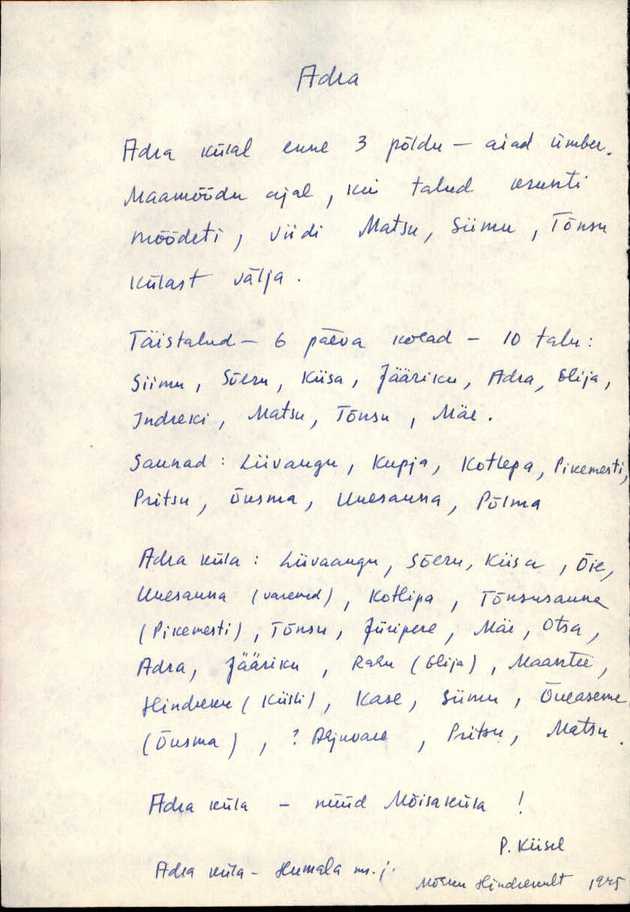 Adra
Adra külal enne 3 põldu – aiad ümber.
Maamõõdu ajal, kui talud krunti
mõõdeti, viidi Matsu, Siimu, Tõnsu
külast välja.
Täistalud – 6 päeva kohad – 10 talu:
Siimu, Sõeru, Kiisa, Jääriku, Adra, Elija,
Indreki, Matsu, Tõnsu, Mäe.
Saunad: Liivangu, Kupja, Kotlepa, Pikemesti,
Pritsu, Õnsma, Uuesauna, Põlma
Adra küla: Liivaangu, Sõeru, Kiisa, Õie,
Uuesauna (varemed), Kotlipa, Tõnsusauna
(Pikemesti), Tõnsu, Jüripere, Mäe, Otsa,
Adra, Jääriku, Rahu (Elija), Maantee,
Hindreku (Küsti), Kase, Siimu, Õueaseme
(Õnsma), ? Pritsu, Matsu.
Adra küla – nüüd Mõisaküla !
P. Kiisel
Adra küla – Humala ms. j.
Hindrekult 1975